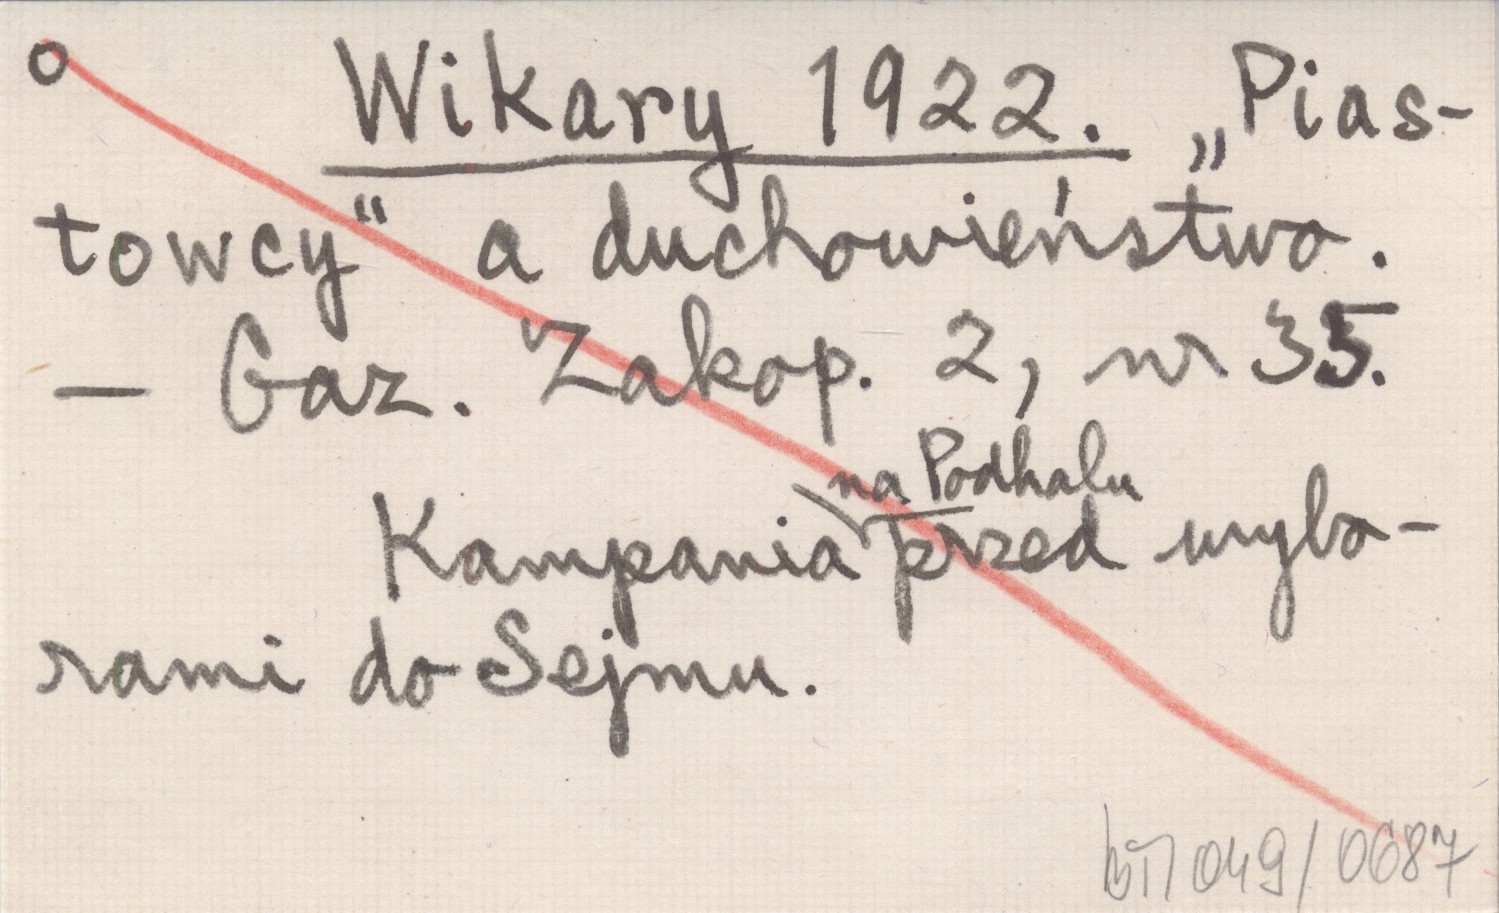 o Wikary 1922. „Pias-
towcy“ a duchowieństwo.
— Gaz. Zakop. 2, nr 35.
na Podhalu
Kampania przed wybo-
rami do Sejmu.
049/0687